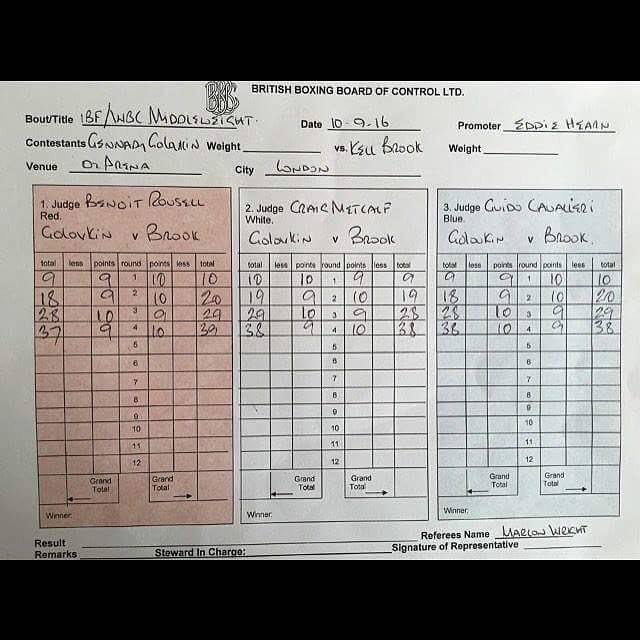 BRITISH BOXING BOARD OF CONTROL LTD.
Bout/Title IBF/WBC MIDDLEWEIGHT. Date 10-9-16 Promoter EDDIE HEARN
Contestants GENNADY GOLOVKIN Weight vs. KELL BROOK Weight
Venue O2 ARENA City LONDON
1. Judge BENOIT ROUSELL 2. Judge CRAIG METCALF 3. Judge GUIDO CAVALIERI
Red. White. Blue.
Golovkin v Brook Golovkin v Brook Golovkin v Brook.
total less points round points less total total less points round points less total total less points round points less total
9 9 1 10 10 10 10 1 9 9 9 9 1 10 10
18 9 2 10 20 19 9 2 10 19 18 9 2 10 20
28 10 3 9 29 29 10 3 9 28 28 10 3 9 29
37 9 4 10 39 38 9 4 10 38 38 10 4 9 38
5 5 5
6 6 6
7 7 7
8 8 8
9 9 9
10 10 10
11 11 11
12 12 12
Grand Grand Grand Grand Grand Grand
Total Total Total Total Total Total
Winner: Winner: Winner:
Result Referees Name MARLON WRIGHT
Remarks Steward In Charge: Signature of Representative